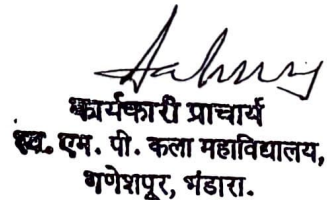 कार्यकारी प्राचार्य
स्व. एम. पी. कला महाविद्यालय,
गणेशपूर, भंडारा.